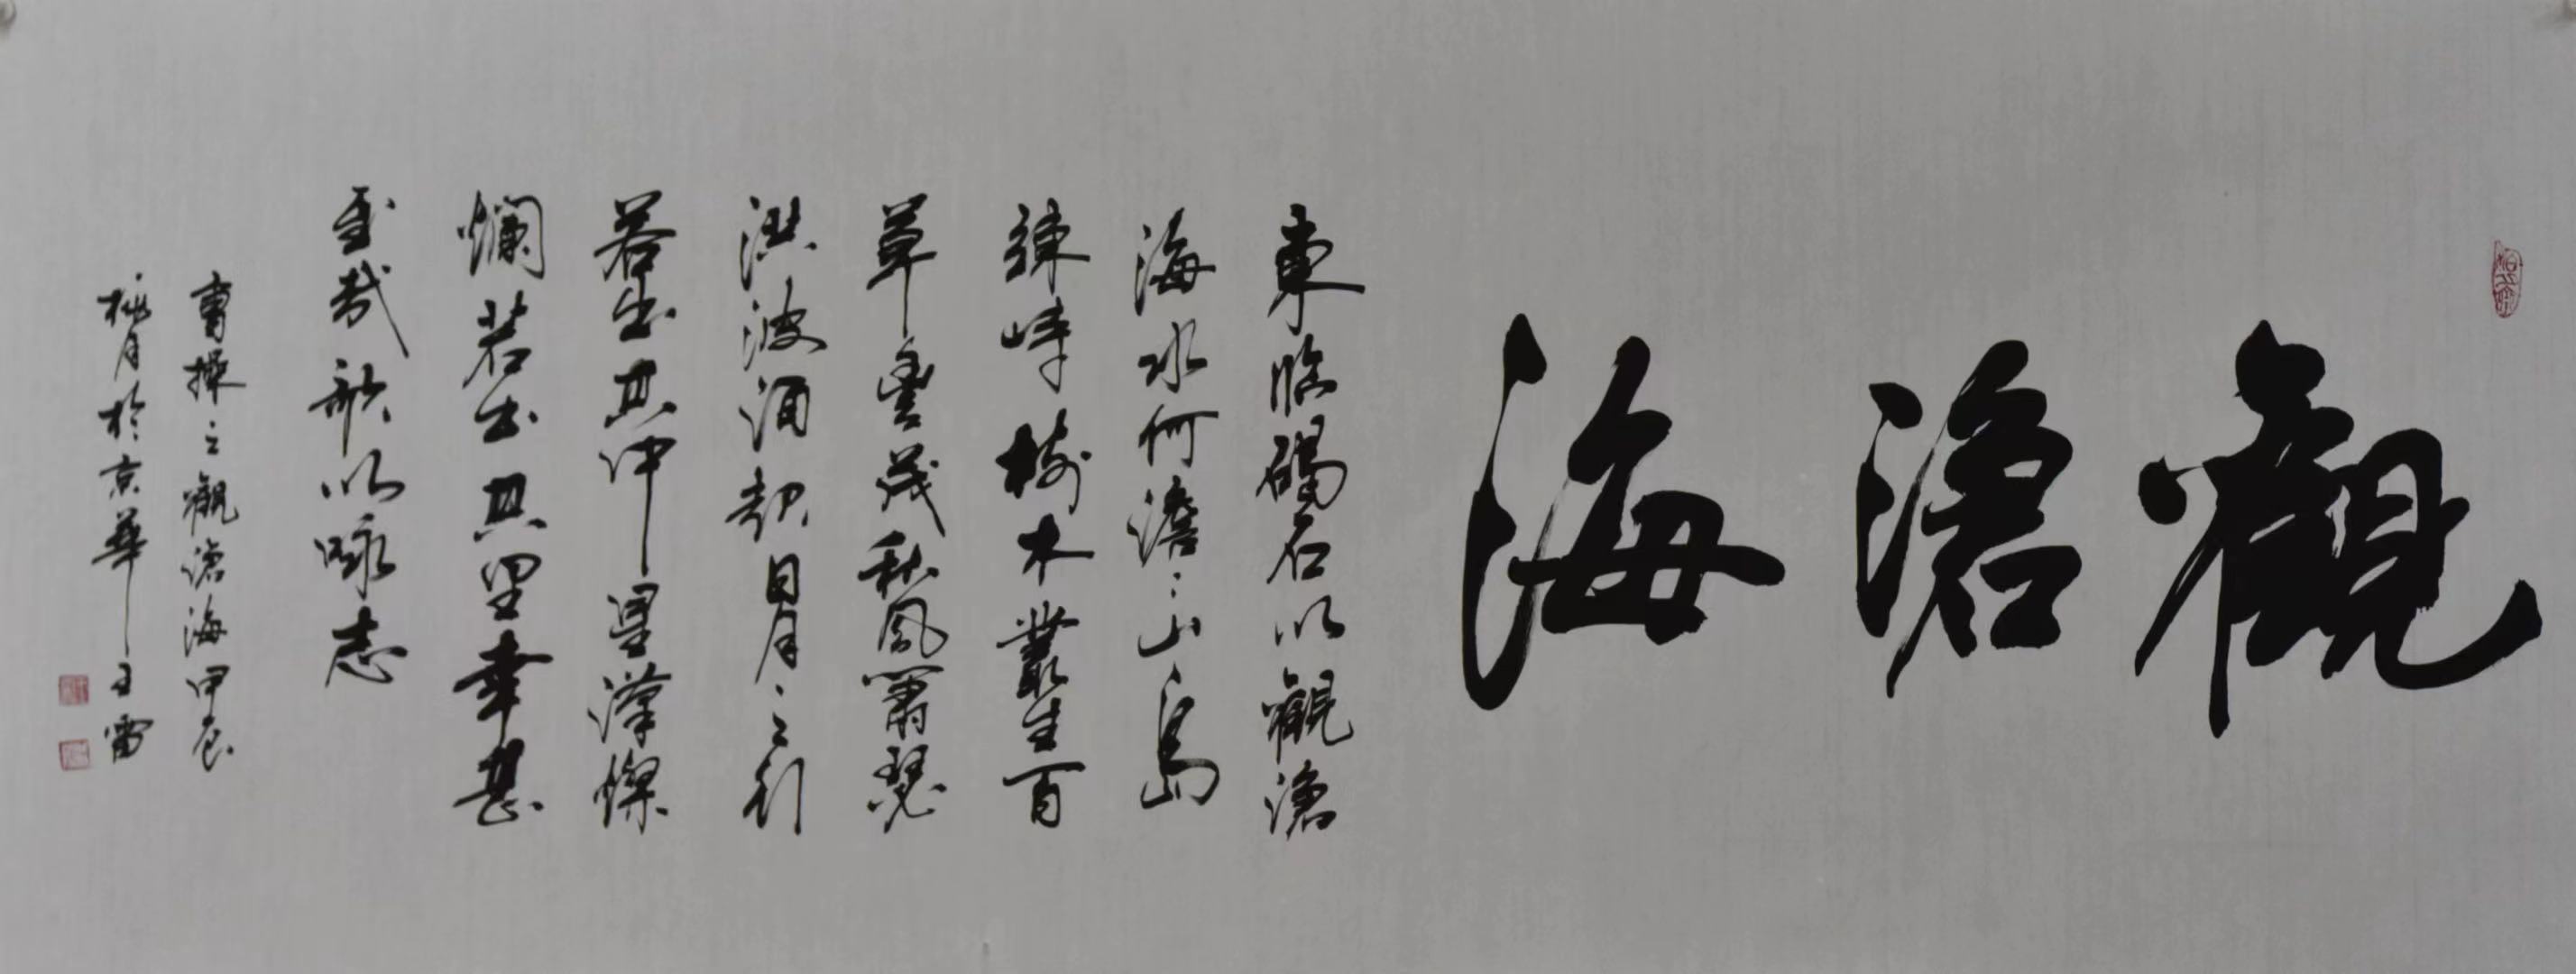 觀滄海
東臨碣石以觀滄
海水何澹:山島
竦峙樹木叢生百
草豐茂秋風蕭瑟
洪波涌起日月之行
若出其中星漢燦
爛若出其里幸甚
至哉歌以咏志
曹操之觀滄海甲辰
桃月於京華王雷